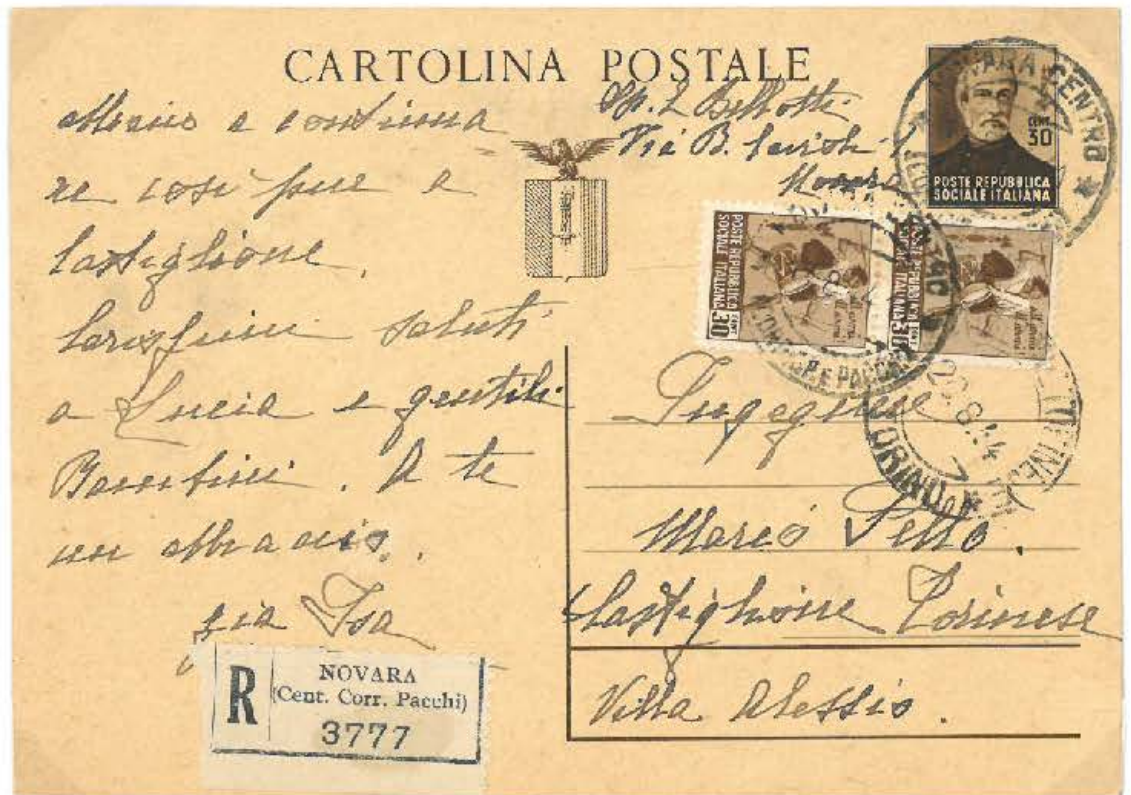 CARTOLINA POSTALE
a continua
re così pure a
Castiglione.
Carissimi saluti
a Lucia e gentili
Bambini. A te
un abbraccio.
zia Isa
R
NOVARA
(Cent. Corr. Pacchi)
3777
Sp. L. Bellotti
Via B.
Novara
CENT
30
POSTE REPUBBLICA
SOCIALE ITALIANA
NOVARA CENTRO
POSTE REPUBBLICA
SOCIALE ITALIANA
CENT
30
POSTE REPUBBLICA
SOCIALE ITALIANA
CENT
30
Ingegnere
Marco
Castiglione Torinese
Villa Alessio.